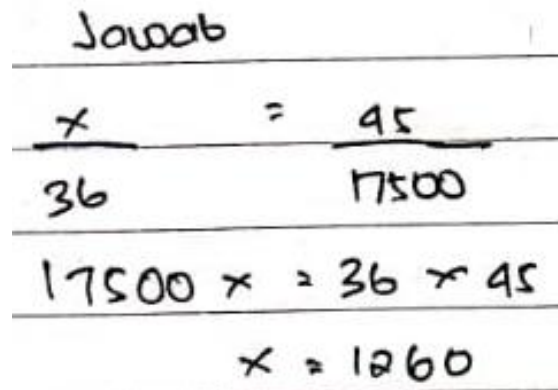 Jawab
x = 45
36 17500
17500 x = 36 x 45
x = 1260